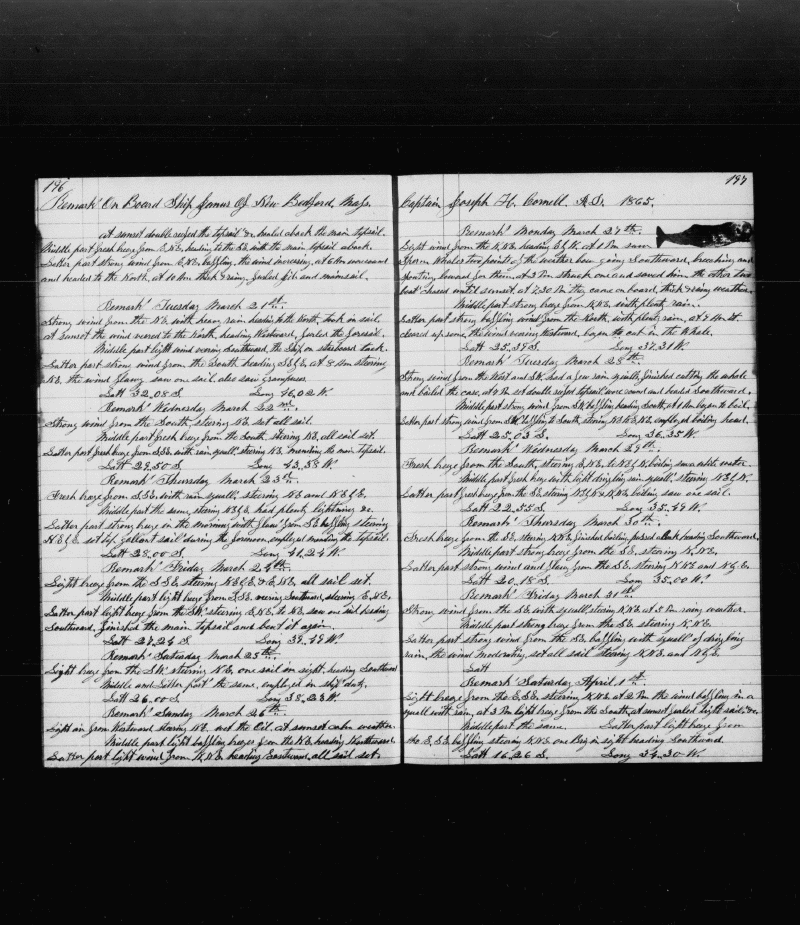 196
Remark's On Board Ship Janus Of New Bedford, Mass.
at sunset double reefed the topsail &c. hauled aback the main topsail.
Middle part fresh breeze from E.N.E. heading to the S.E. with the main topsail aback.
Latter part strong wind from E.N.E. baffling, the wind increasing, at 6 Am wore round
and headed to the North, at 10 Am thick & rainy, furled jib and mainsail.
Remark's Tuesday March 21st.
Strong wind from the N.E. with heavy rain, heading to the North, took in sail
at sunset the wind veered to the North, heading Westward, furled the foresail.
Middle part light wind veering Southward, the Ship on starboard tack.
Latter part strong wind from the South heading S.E.&E. at 8 Am steering
N.E. the wind &amp; saw one sail, also saw grampuses.
Latt 32,08 S. Long 46,02 W.
Remark's Wednesday March 22nd.
Strong wind from the South, steering N.E. set all sail.
Middle part fresh breeze from the South, steering N.E. all sail set.
Latter part fresh breeze from S.S.E. with rain squalls, steering N.E. mending the main topsail.
Latt 29,50 S. Long 43,58 W.
Remark's Thursday March 23th.
Fresh breeze from S.S.E. with rain squalls, steering N.E. and N.E.&E.
Middle part the same, steering N.E.&E. had plenty lightning &c.
Latter part strong breeze in the morning with from S.E. baffling steering
N.E.&E. set top gallant sail during the forenoon, employed mending the topsail.
Latt 28,00 S. Long 41,24 W.
Remark's Friday March 24th.
Light breeze from the S.S.E. steering N.E.&E. & E.N.E. all sail set.
Middle part light breeze from S.S.E. veering Southward, steering E.N.E.
Latter part light breeze from the S.W. steering E.N.E. to N.E. saw one sail heading
Southward. finished the main topsail and bent it again.
Latt 27,24 S. Long 39,49 W.
Remark's Saturday March 25th.
Light breeze from the S.W. steering N.E. one sail in sight, heading Southward
Middle and Latter part the same, employed in ship's duty.
Latt 26,00 S. Long 38,23 W.
Remark's Sunday March 26th.
Light air from Westward steering N.E. wet the Oil. at sunset calm weather.
Middle part light baffling breezes from the N.E. heading Northward.
Latter part light wind from N.N.E. heading Eastward, all sail set.
197
Captain Joseph H. Cornell. A.D. 1865.
Remark's Monday March 27th.
Light wind from the N.N.E. heading E.&N. at 1 Pm saw
Sperm Whales two points off the weather bow going Southward, breaching and
spouting lowered for them, at 3 Pm struck one and saved him the other two
boats chased until sunset. at 7,30 Pm they came on board, thick & rainy weather.
Middle part strong breeze from N.N.E. with plenty rain.
Latter part strong baffling wind from the North, with plenty rain, at 9 Am it
cleared up some, the wind veering Westward, began to cut in the Whale.
Latt 25,39 S. Long 37,31 W.
Remark's Tuesday March 28th.
Strong wind from the West and S.W. had a few rain squalls, finished cutting the whale
and bailed the case, at 4 Pm set double reefed topsails, wore round and headed Southward.
Middle part strong wind from S.W. baffling heading South, at 1 Am began to boil.
Latter part strong wind from S.W. baffling to South, steering N.E.&N.E. employed boiling head.
Latt 25,03 S. Long 36,35 W.
Remark's Wednesday March 29th.
Fresh breeze from the South, steering E.N.E. to N.E.&N. boiling saw white water.
Middle part fresh breeze with light drizzling rain squalls, steering N.E.&N.
Latter part fresh breeze from the S.E. steering N.E.&N & N.N.E. boiling saw one sail.
Latt 22,55 S. Long 35,49 W.
Remark's Thursday March 30th.
Fresh breeze from the S.E. steering N.N.E. finished boiling, passed a Bark heading Southward.
Middle part strong breeze from the S.E. steering N.N.E.
Latter part strong wind and from the S.E. steering N.N.E. and N.&E.
Latt 20,18 S. Long 35,00 W.
Remark's Friday March 31st.
Strong wind from the S.E. with squalls, steering N.N.E. at 5 Pm rainy weather.
Middle part strong breeze from the S.E. steering N.N.E.
Latter part strong wind from the S.E. baffling with squalls of drizzling
rain, the wind moderating, set all sail steering N.N.E. and N.&E.
Latt
Remark's Saturday April 1st.
Light breeze from the E.S.E. steering N.N.E. at 2 Pm the wind baffling in a
squall with rain, at 3 Pm light breeze from the South, at sunset furled light sails, &c.
Middle part the same. Latter part light breeze from
the E.S.E. baffling steering N.N.E. one Brig in sight heading Southward.
Latt 16,26 S. Long 34,30 W.